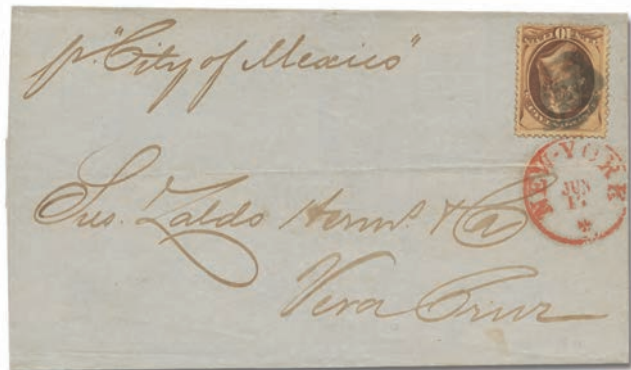 pr. "City of Mexico"
NEW-YORK
JUN
Sres. Zaldo Herms. & Ca
Vera Cruz